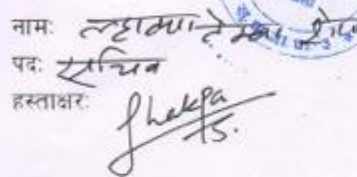 नामः ल्हाक्पा टेम्बा शेर्पा
पदः सचिव
हस्ताक्षरः Lhakpa
TS.